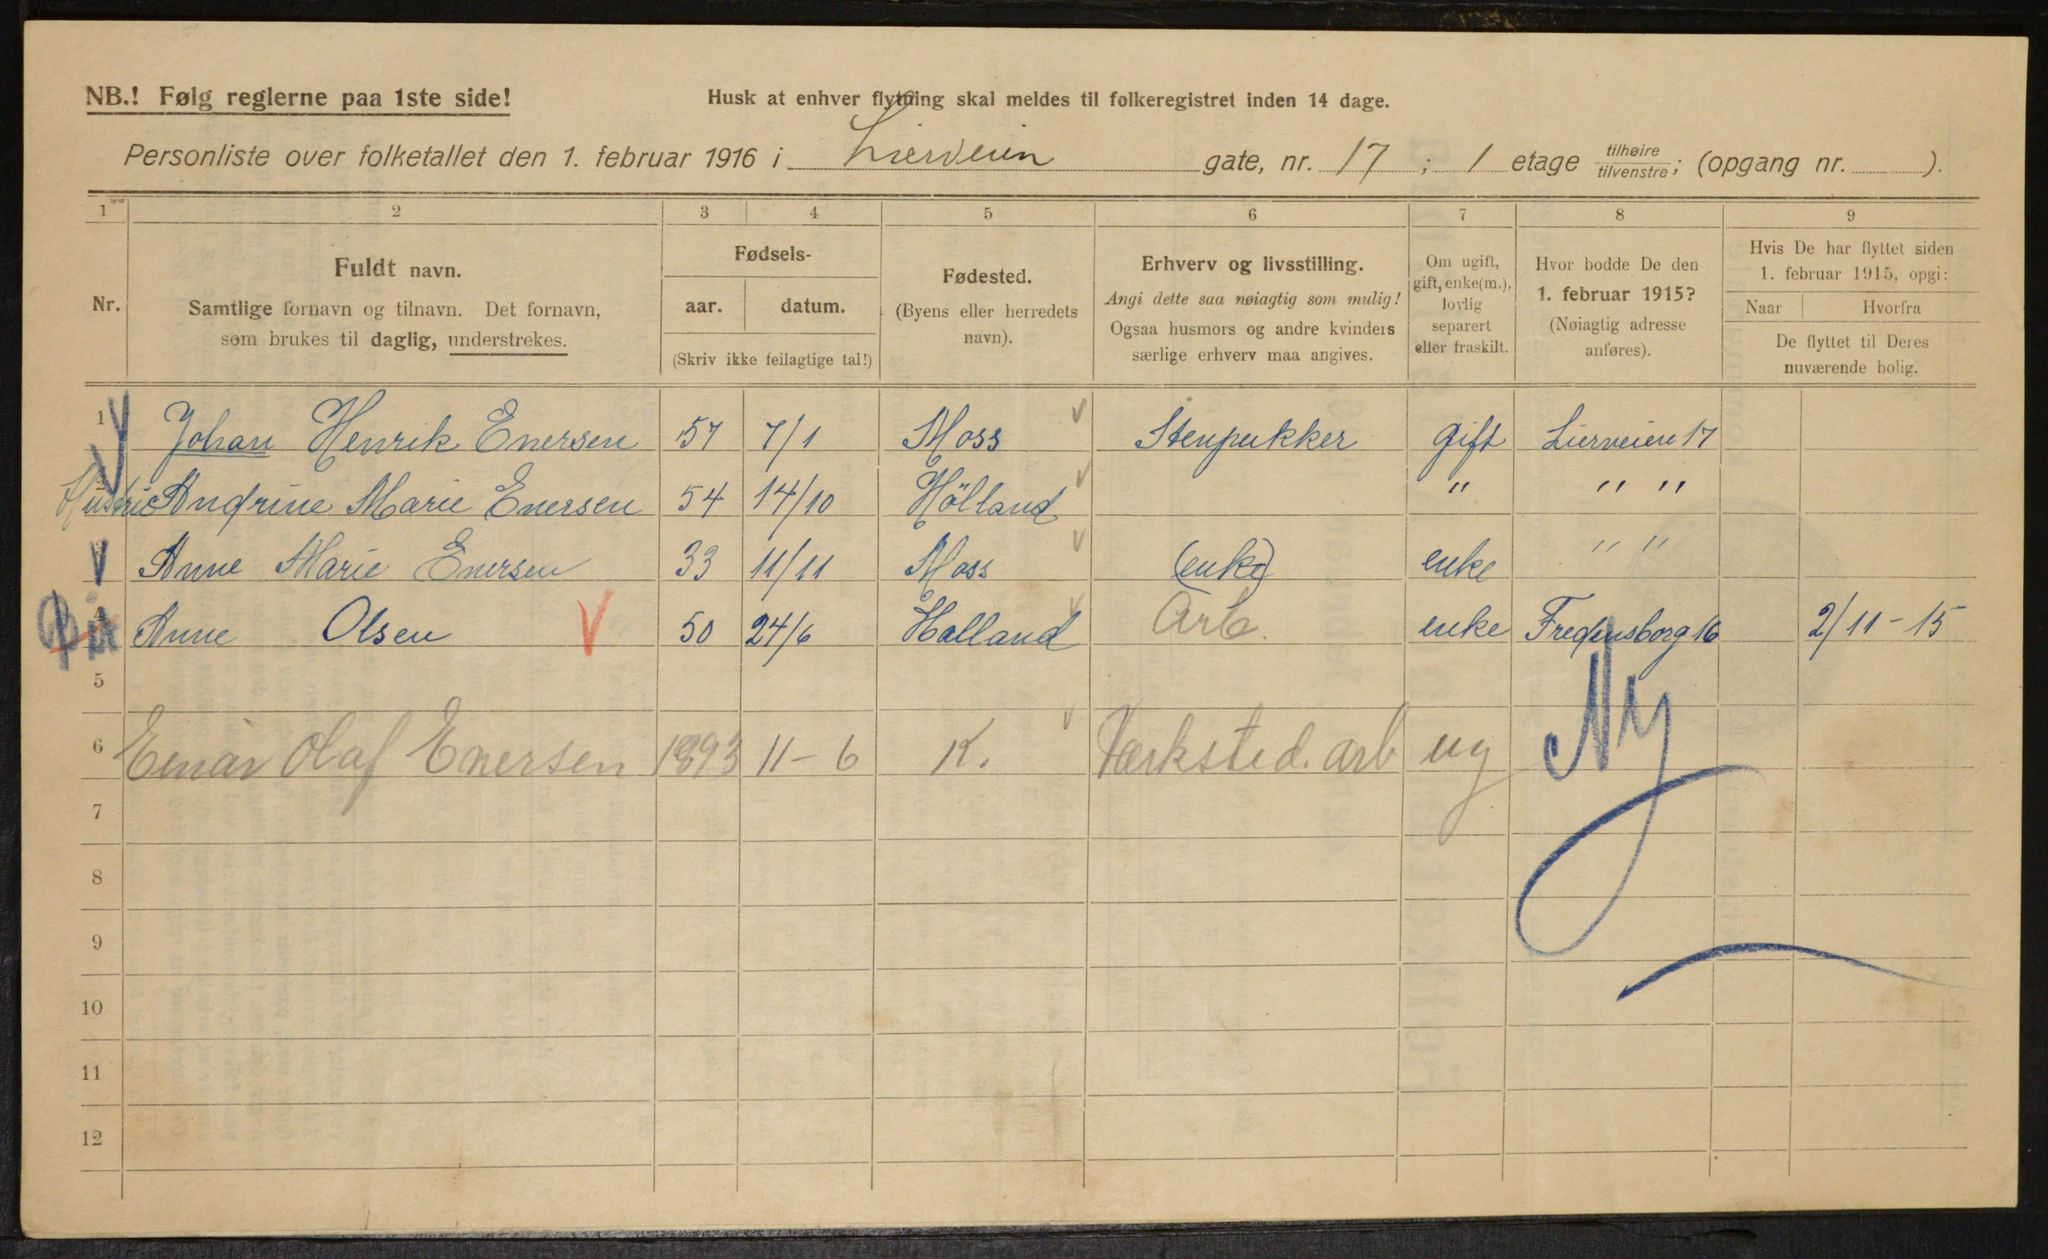 NB.! Følg reglerne paa 1ste side!
Husk at enhver flytning skal meldes til folkeregistret inden 14 dage.
Personliste over folketallet den 1. februar 1916 i Lierveien gate, nr. 17 ; 1 etage tilhøire/tilvenstre; (opgang nr. ).
1 2 3 4 5 6 7 8 9
Nr.
Fuldt navn.
Samtlige fornavn og tilnavn. Det fornavn,
som brukes til daglig, understrekes.
Fødsels-
aar. datum.
(Skriv ikke feilagtige tal!)
Fødested.
(Byens eller herredets
navn).
Erhverv og livsstilling.
Angi dette saa nøiagtig som mulig!
Ogsaa husmors og andre kvinders
særlige erhverv maa angives.
Om ugift,
gift, enke(m.),
lovlig
separert
eller fraskilt.
Hvor bodde De den
1. februar 1915?
(Nøiagtig adresse
anføres).
Hvis De har flyttet siden
1. februar 1915, opgi:
Naar Hvorfra
De flyttet til Deres
nuværende bolig.
1 Johan Henrik Enersen 57 7/1 Moss Stenpukker gift Lierveien 17
Andrine Marie Enersen 54 14/10 Hölland " " "
Anne Marie Enersen 33 11/11 Moss (enke) enke " "
Anne Olsen V 50 24/6 Halland Arb. enke Fredensborg 16 2/11-15
5
6 Einar Olaf Enersen 1893 11-6 K. Værksted. arb ug Ny
7
8
9
10
11
12